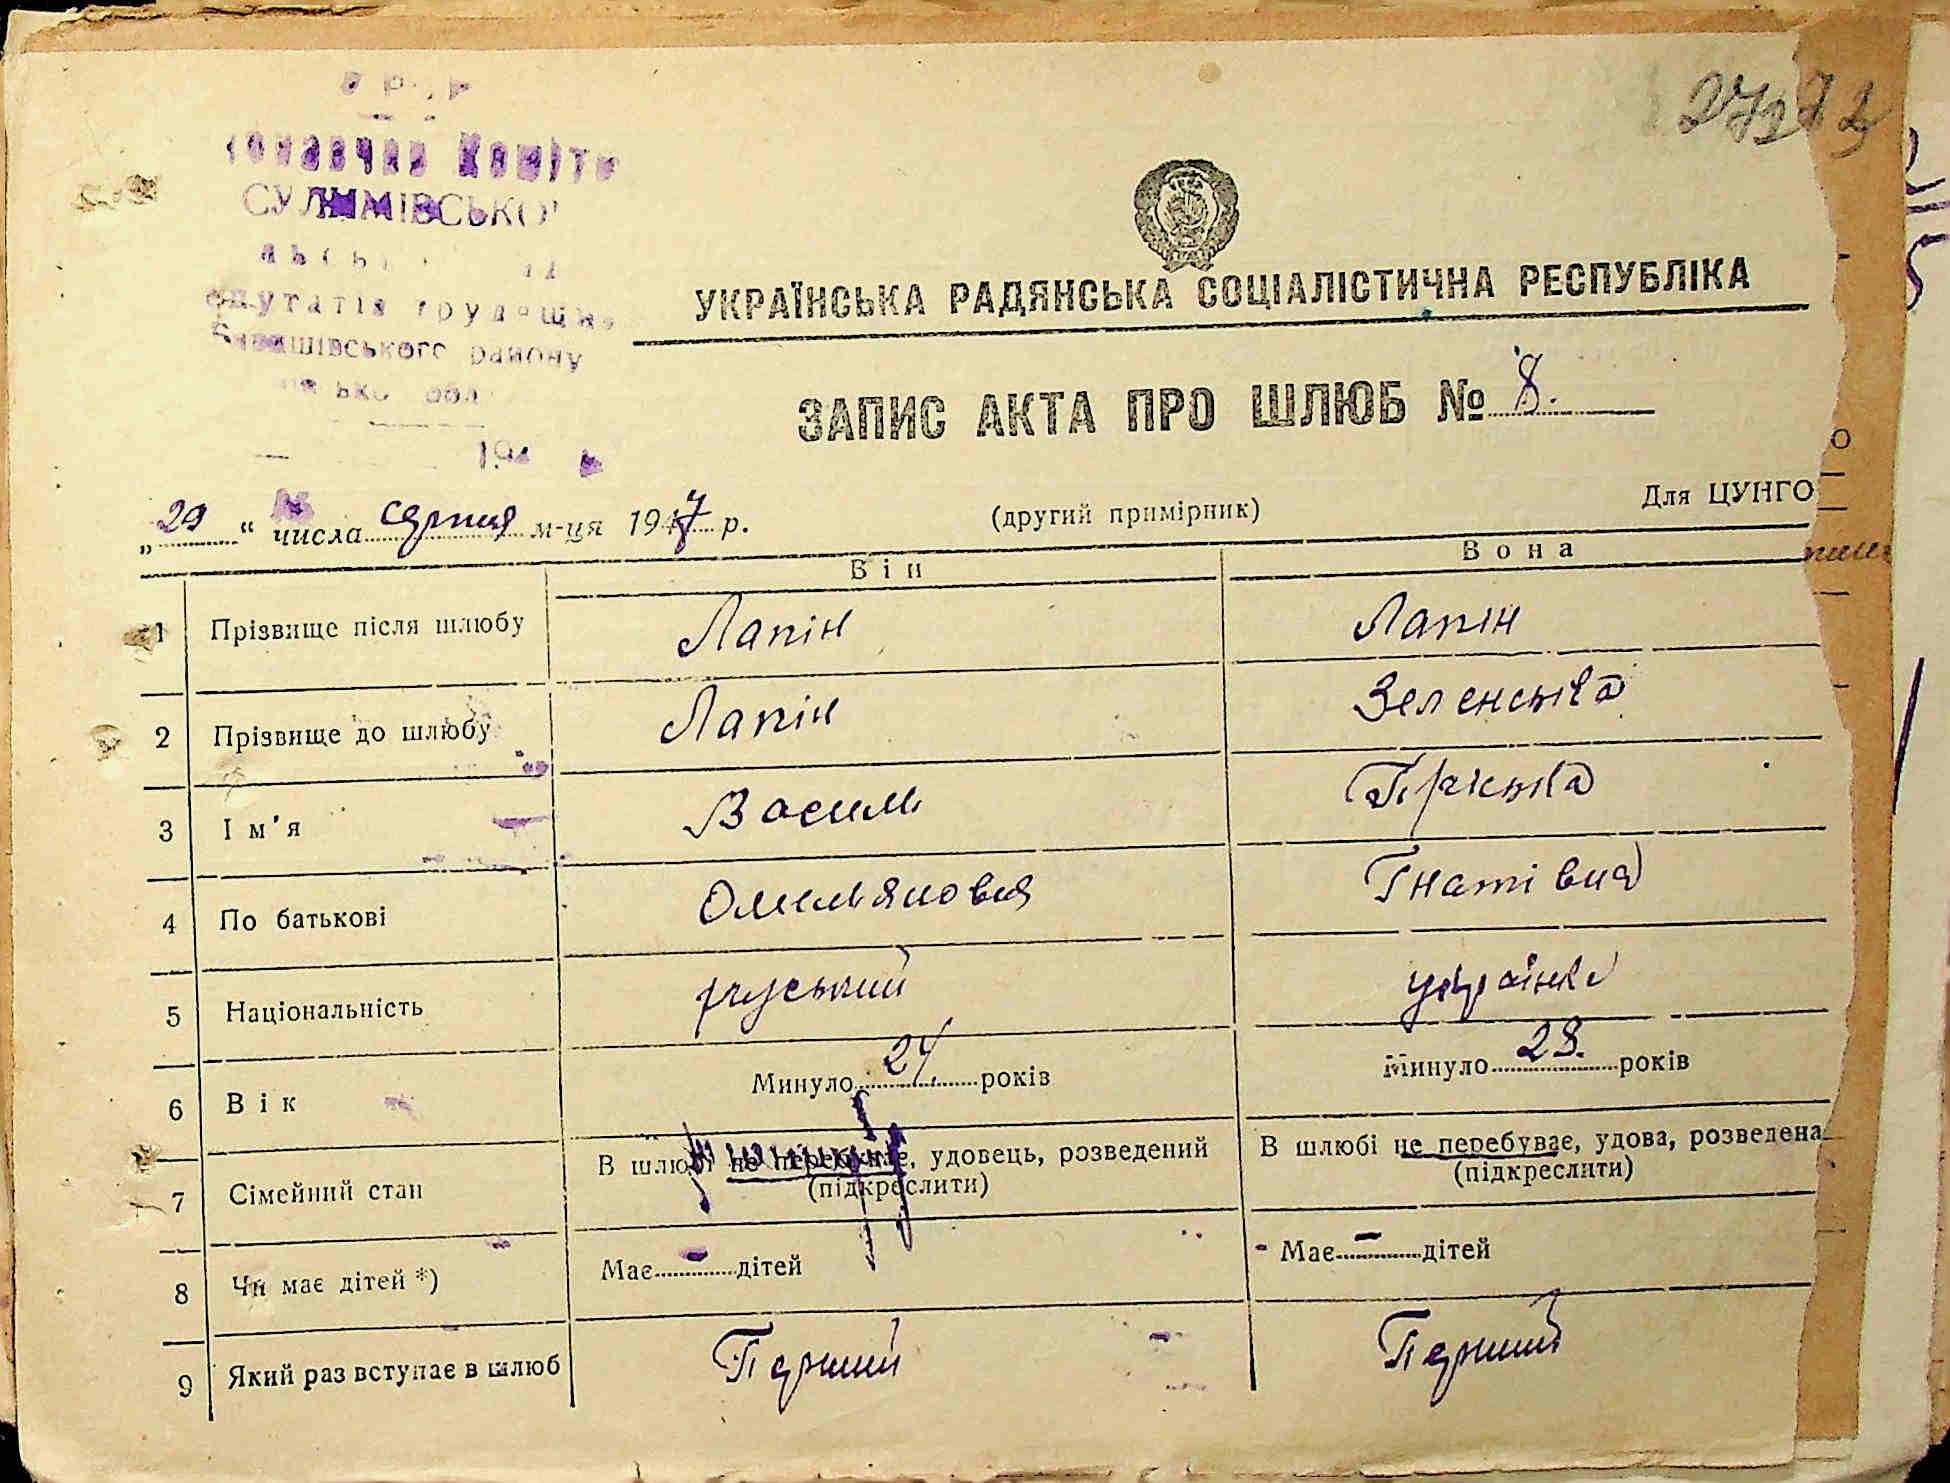 СУЛИМІВСЬКОЇ
депутатів трудящих
Баришівського району
УКРАЇНСЬКА РАДЯНСЬКА СОЦІАЛІСТИЧНА РЕСПУБЛІКА
ЗАПИС АКТА ПРО ШЛЮБ № 8.
„29“ числа серпня м-ця 1947 р. (другий примірник) Для ЦУНГО
Він Вона
1 Прізвище після шлюбу Лапін Лапін
2 Прізвище до шлюбу Лапін Зеленська
3 Ім'я Василь
4 По батькові Омельянович Гнатівна
5 Національність руський українка
6 Вік Минуло 24 років Минуло 28. років
7 Сімейний стан В шлюбі не перебуває, удовець, розведений В шлюбі не перебуває, удова, розведена
(підкреслити) (підкреслити)
8 Чи має дітей *) Має - дітей Має - дітей
9 Який раз вступає в шлюб Перший Перший